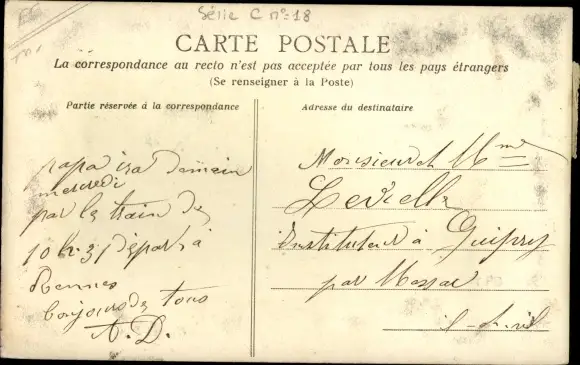 Série C n°=18
CARTE POSTALE
La correspondance au recto n'est pas acceptée par tous les pays étrangers
(Se renseigner à la Poste)
Partie réservée à la correspondance
papa ira demain
mercredi
par le train de
10 h. 31 départ à
Rennes
bonjours de tous
A. D.
Adresse du destinataire
Monsieur et Mme
Instituteur à Guipry
par Messac
I-et-V